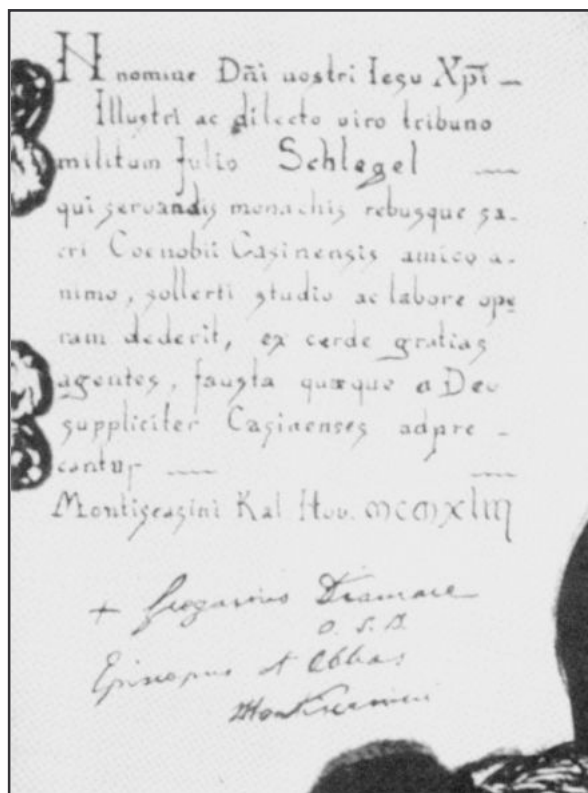 IN nomine Dñi nostri Iesu Xpī —
Illustri ac dilecto viro tribuno
militum Julio Schlegel
qui servandis monachis rebusque sa-
cri Coenobii Casinensis amico a-
nimo, sollerti studio ac labore ope
ram dederit, ex corde gratias
agentes, fausta quæque a Deo
suppliciter Casinenses adpre-
cantur
Montiscasini Kal Nov. MCMXLIII
+ Gregorius Diamare
O. S. B.
Episcopus et Abbas
Montiscasini